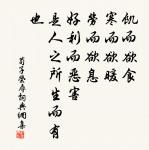 飢而欲食
寒而欲暖
勞而欲息
好利而惡害
是人之所生而有
也
荀子榮辱詞典網集